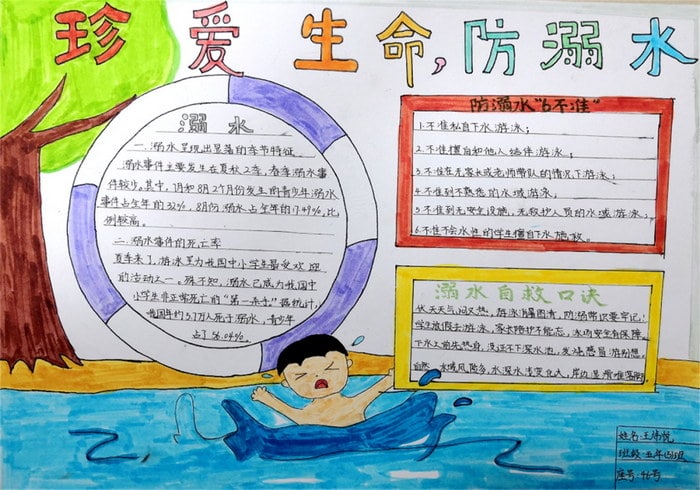 珍爱生命,防溺水
溺水
一.溺水呈现出显落的季节特征。
溺水事件主要发生在夏秋2季,春季溺水事
件较少。其中,7月和8月2个月份发生的青少年溺水
事件占全年的32%,8月份溺水占全年的7.49%,比
例较高。
二.溺水事件的死亡率
夏季来了,游泳是为我国中小学生最受欢迎
的活动之一。殊不知,溺水已成为我国中
小学生非正常死亡的“第一杀手”据统计,
我国每年约5.7万人死于溺水,青少年
占了56.04%
防溺水“6不准”
1.不准私自下水游泳;
2.不准擅自和他人结伴游泳;
3.不准在无家长或老师带队的情况下游泳;
4.不准到不熟悉的水域游泳;
5.不准到无安全设施,无救护人员的水域游泳;
6.不准不会水性的学生擅自下水施救。
溺水自救口诀
伏天天气闷又热,游泳消暑图清,防溺常识要牢记!
学生放假去游泳,家长陪护不能忘,泳内安全有保障。
下水之前先热身,没证不下深水池,发烧感冒游别想。
自然水域风险多,水深水浅变化大,岸边湿滑
姓名:王炜悦
班级:五年
座号:46号